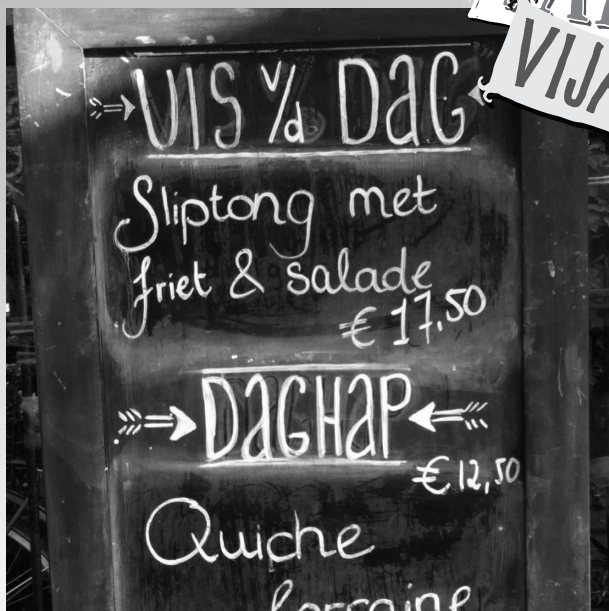 VIJ
VIS v/d DAG
Sliptong met
friet & salade
€ 17,50
DAGHAP
€ 12,50
Quiche
lorraine